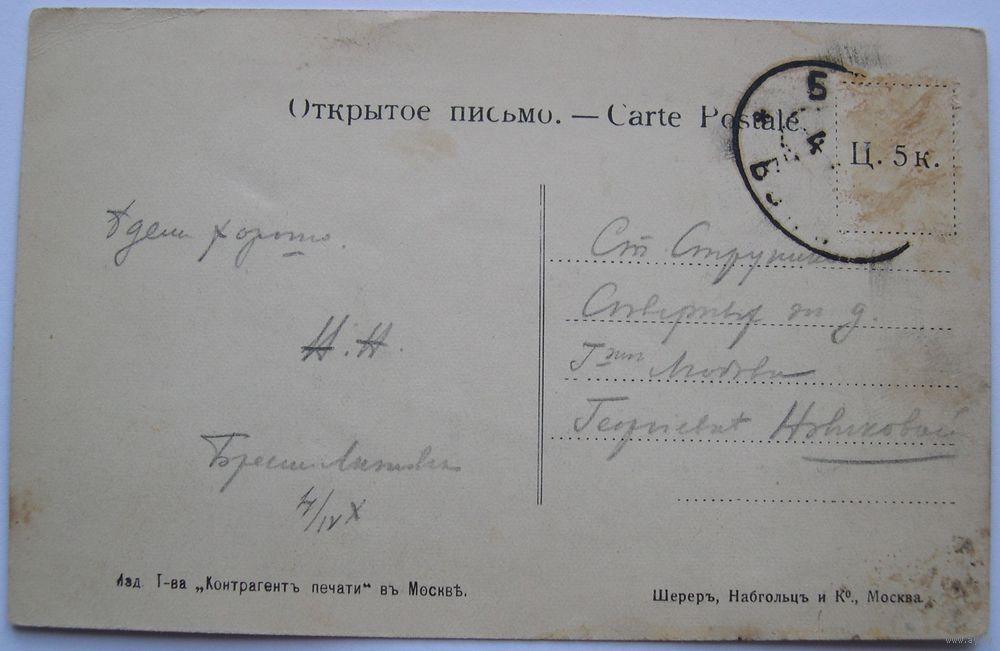 Открытое письмо. — Carte Postale.
Ц. 5 к.
Б
4
ѣдем хорошо.
Н. Н.
Брест Литовск
4/IV X
Ст
Северных ж д.
Гжѣ Любови
Георгиевнѣ Новиковой
Изд. Т-ва „Контрагентъ печати“ въ Москвѣ.
Шереръ, Набгольцъ и Кº., Москва.